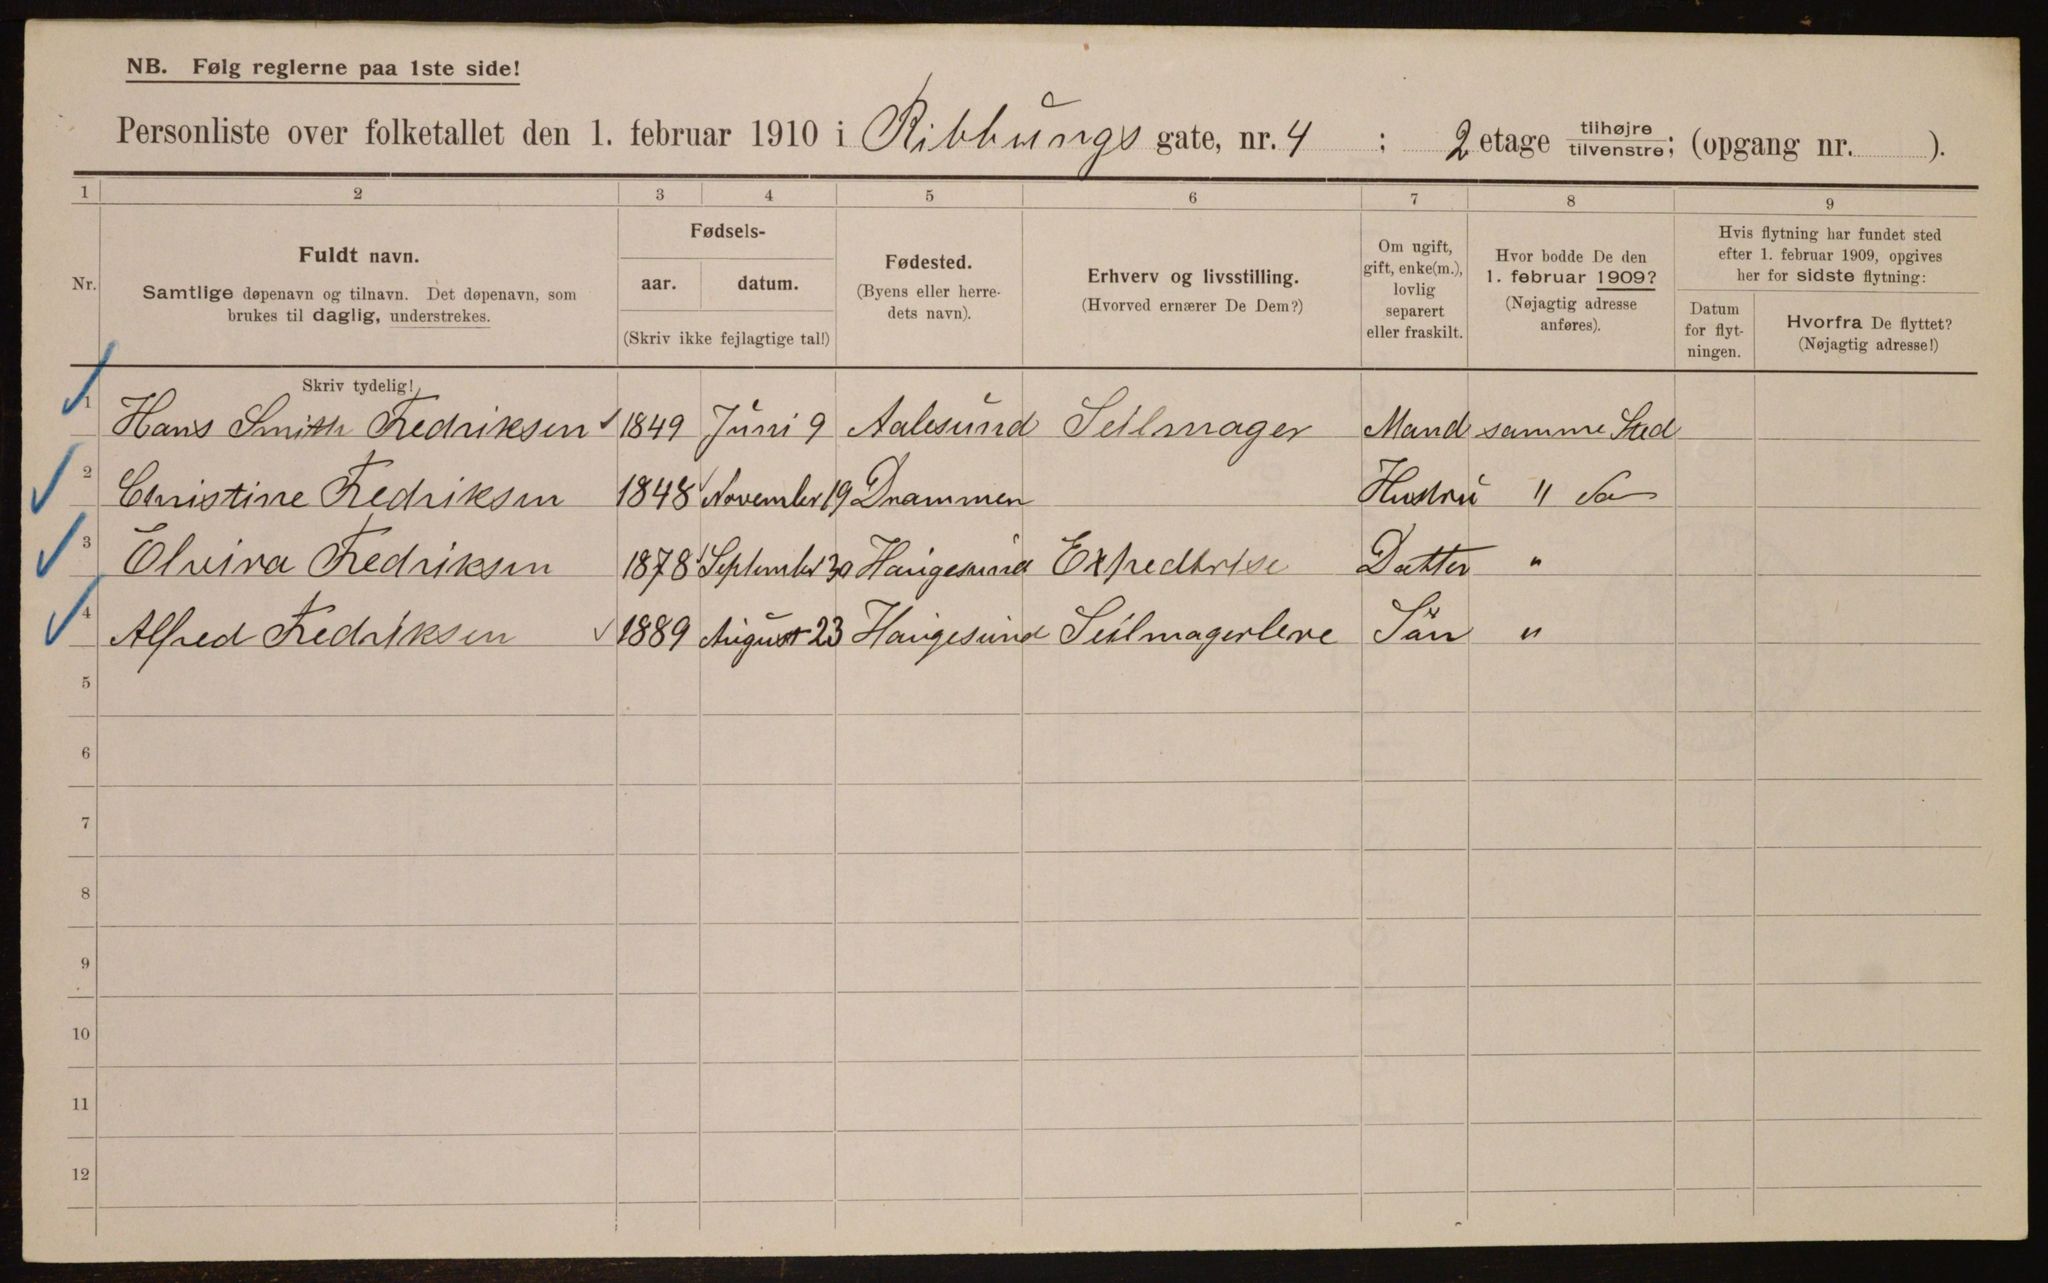 NB. Følg reglerne paa 1ste side!
Personliste over folketallet den 1. februar 1910 i Ribbungs gate, nr. 4 ; 2 etage tilhøjre tilvenstre; (opgang nr. ).
1 2 3 4 5 6 7 8 9
Nr.
Fuldt navn.
Samtlige døpenavn og tilnavn. Det døpenavn, som
brukes til daglig, understrekes.
Fødsels-
aar. datum.
(Skriv ikke fejlagtige tal!)
Fødested.
(Byens eller herre-
dets navn).
Erhverv og livsstilling.
(Hvorved ernærer De Dem?)
Om ugift,
gift, enke(m.),
lovlig
separert
eller fraskilt.
Hvor bodde De den
1. februar 1909?
(Nøjagtig adresse
anføres).
Hvis flytning har fundet sted
efter 1. februar 1909, opgives
her for sidste flytning:
Datum
for flyt-
ningen.
Hvorfra De flyttet?
(Nøjagtig adresse!)
Skriv tydelig!
1 Hans Smith Fredriksen 1849 Juni 9 Aalesund Seilmager Mand samme Sted
2 Christine Fredriksen 1848 November 19 Drammen Hustru "
3 Elvira Fredriksen 1878 September 30 Haugesund Expedtrise Datter "
4 Alfred Fredriksen 1889 August 23 Haugesund Seilmagerlere Sön "
5
6
7
8
9
10
11
12